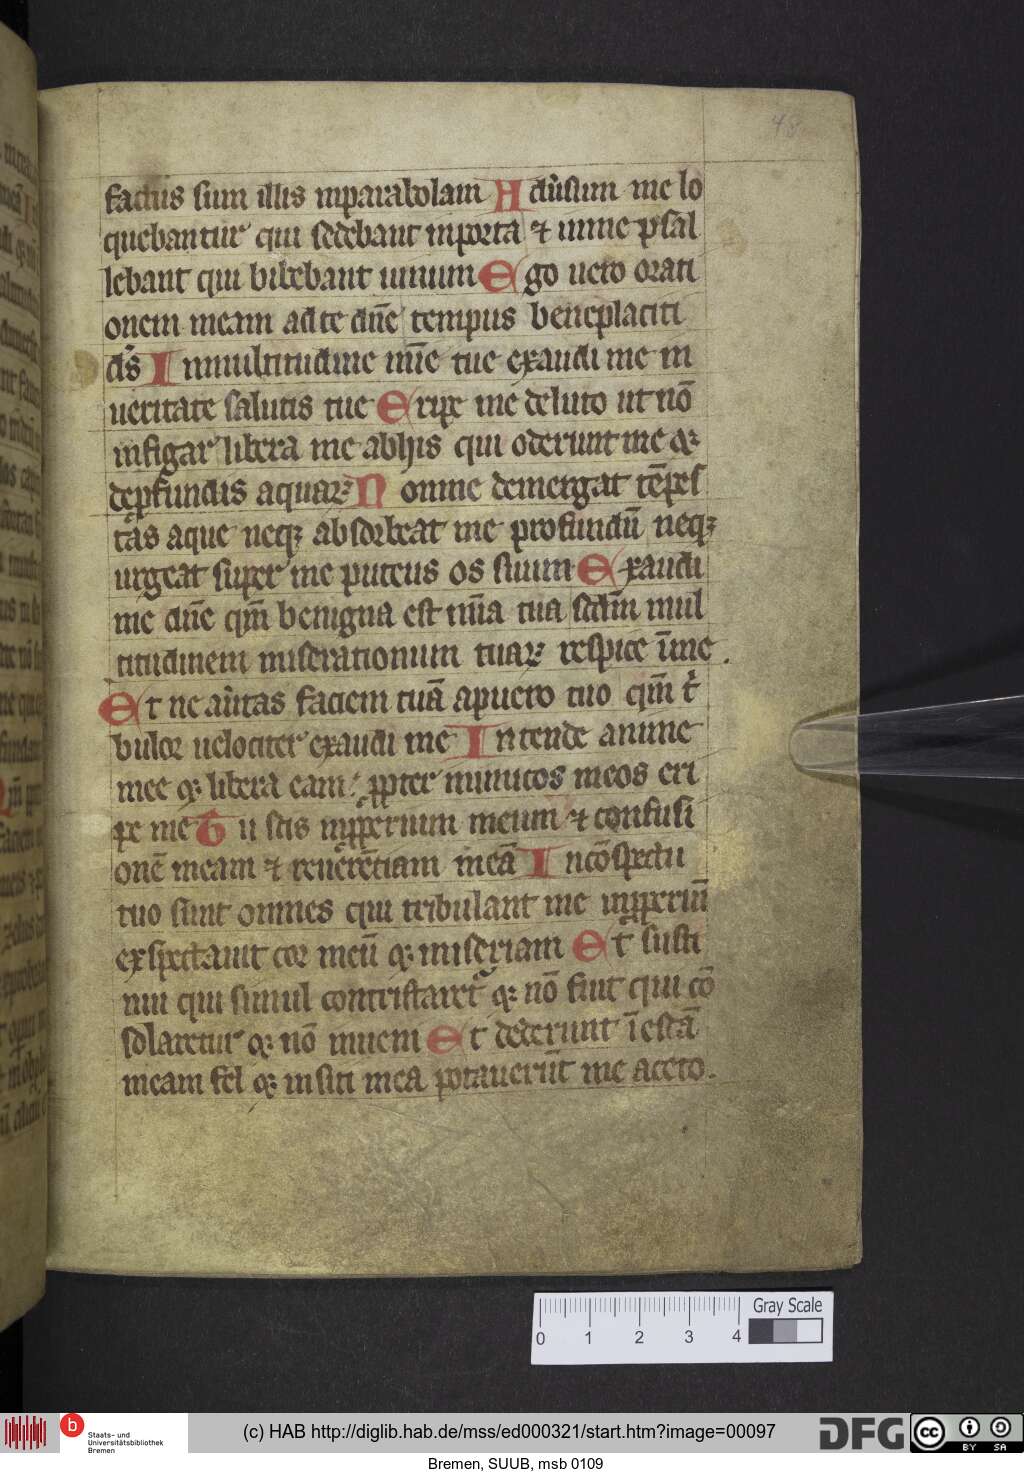 48
factus sum illis inparabolam Adūsum me lo
quebantur qui sedebant inporta ⁊ inme psal
lebant qui bibebant uinum Ego uero orati
onem meam adte dn̄e tempus beneplaciti
ds̄ Inmultitudine mīe tue exaudi me in
ueritate salutis tue Eripe me deluto ut nō
infigar libera me abhis qui oderunt me ꝫ
deꝓfundis aquaꝝ Nonme demergat tēpes
tas aque neqꝫ absorbeat me profundū neqꝫ
urgeat super me puteus os suum Exaudi
me dn̄e qm̄ benigna est mīa tua scdm̄ mul
titudinem miserationum tuaꝝ respice īme .
Et ne au̅tas faciem tuā apuero tuo qm̄ t̄
bulor uelociter exaudi me Intende anime
mee ꝫ libera eam : ꝓpter inimicos meos eri
pe me Tu scis inꝓperium meum ⁊ confusi
onē meam ⁊ reuerētiam meā Incōspectu
tuo sunt omnes qui tribulant me inꝓperiū
exspectauit cor meū ꝫ miseriam Et susti
nui qui simul contristaret᷑ ꝫ nō fuit qui cō
solaretur ꝫ nō inueni Et dederunt ī escā
meam fel ꝫ insiti mea potauerūt me aceto .
Gray Scale
0 1 2 3 4
b
Staats- und
Universitätsbibliothek
Bremen
(c) HAB http://diglib.hab.de/mss/ed000321/start.htm?image=00097
DFG
cc BY SA
Bremen, SUUB, msb 0109